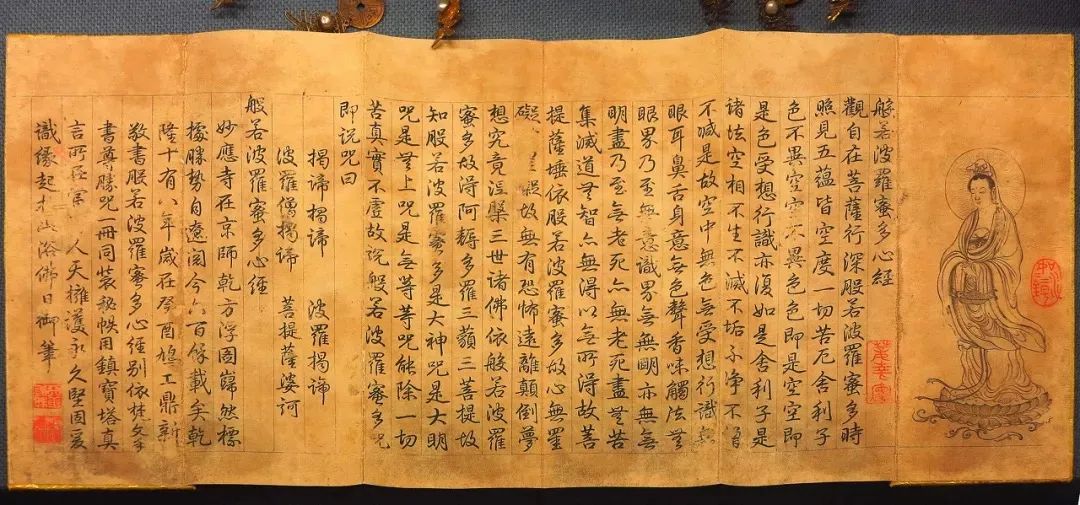 般若波羅蜜多心經
觀自在菩薩行深般若波羅蜜多時
照見五蘊皆空度一切苦厄舍利子
色不異空空不異色色即是空空即
是色受想行識亦復如是舍利子是
諸法空相不生不滅不垢不淨不增
不減是故空中無色無受想行識無
眼耳鼻舌身意無色聲香味觸法無
眼界乃至無意識界無無明亦無無
明盡乃至無老死亦無老死盡無苦
集滅道無智亦無得以無所得故菩
提薩埵依般若波羅蜜多故心無罣
礙礙故無有恐怖遠離顛倒夢
想究竟涅槃三世諸佛依般若波羅
蜜多故得阿耨多羅三藐三菩提故
知般若波羅蜜多是大神咒是大明
咒是無上咒是無等等咒能除一切
苦真實不虛故說般若波羅蜜多咒
即說咒曰
揭諦揭諦 波羅揭諦
波羅僧揭諦 菩提薩婆訶
般若波羅蜜多心經
妙應寺在京師乾方浮圖巋然標
據勝勢自遼閱今六百餘載矣乾
隆十有八年歲在癸酉鳩工鼎新
敬書般若波羅蜜多心經別依梵本
書尊勝咒一冊同裝秘帙用鎮寶塔真
言所在 人天擁護永久堅固爰
識緣起於此浴佛日御筆